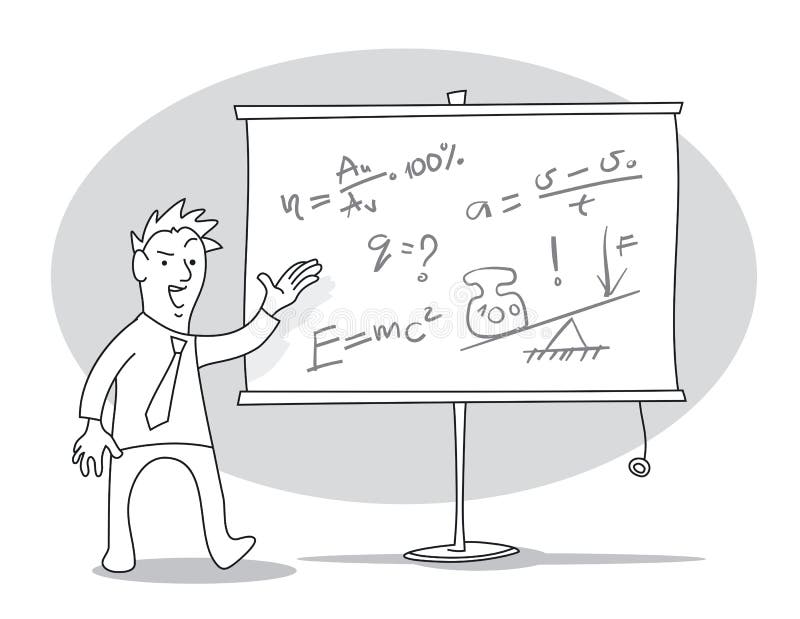 η = Au/Av · 100%
a = (v - v₀)/t
q = ?
!
F
100
E = mc²